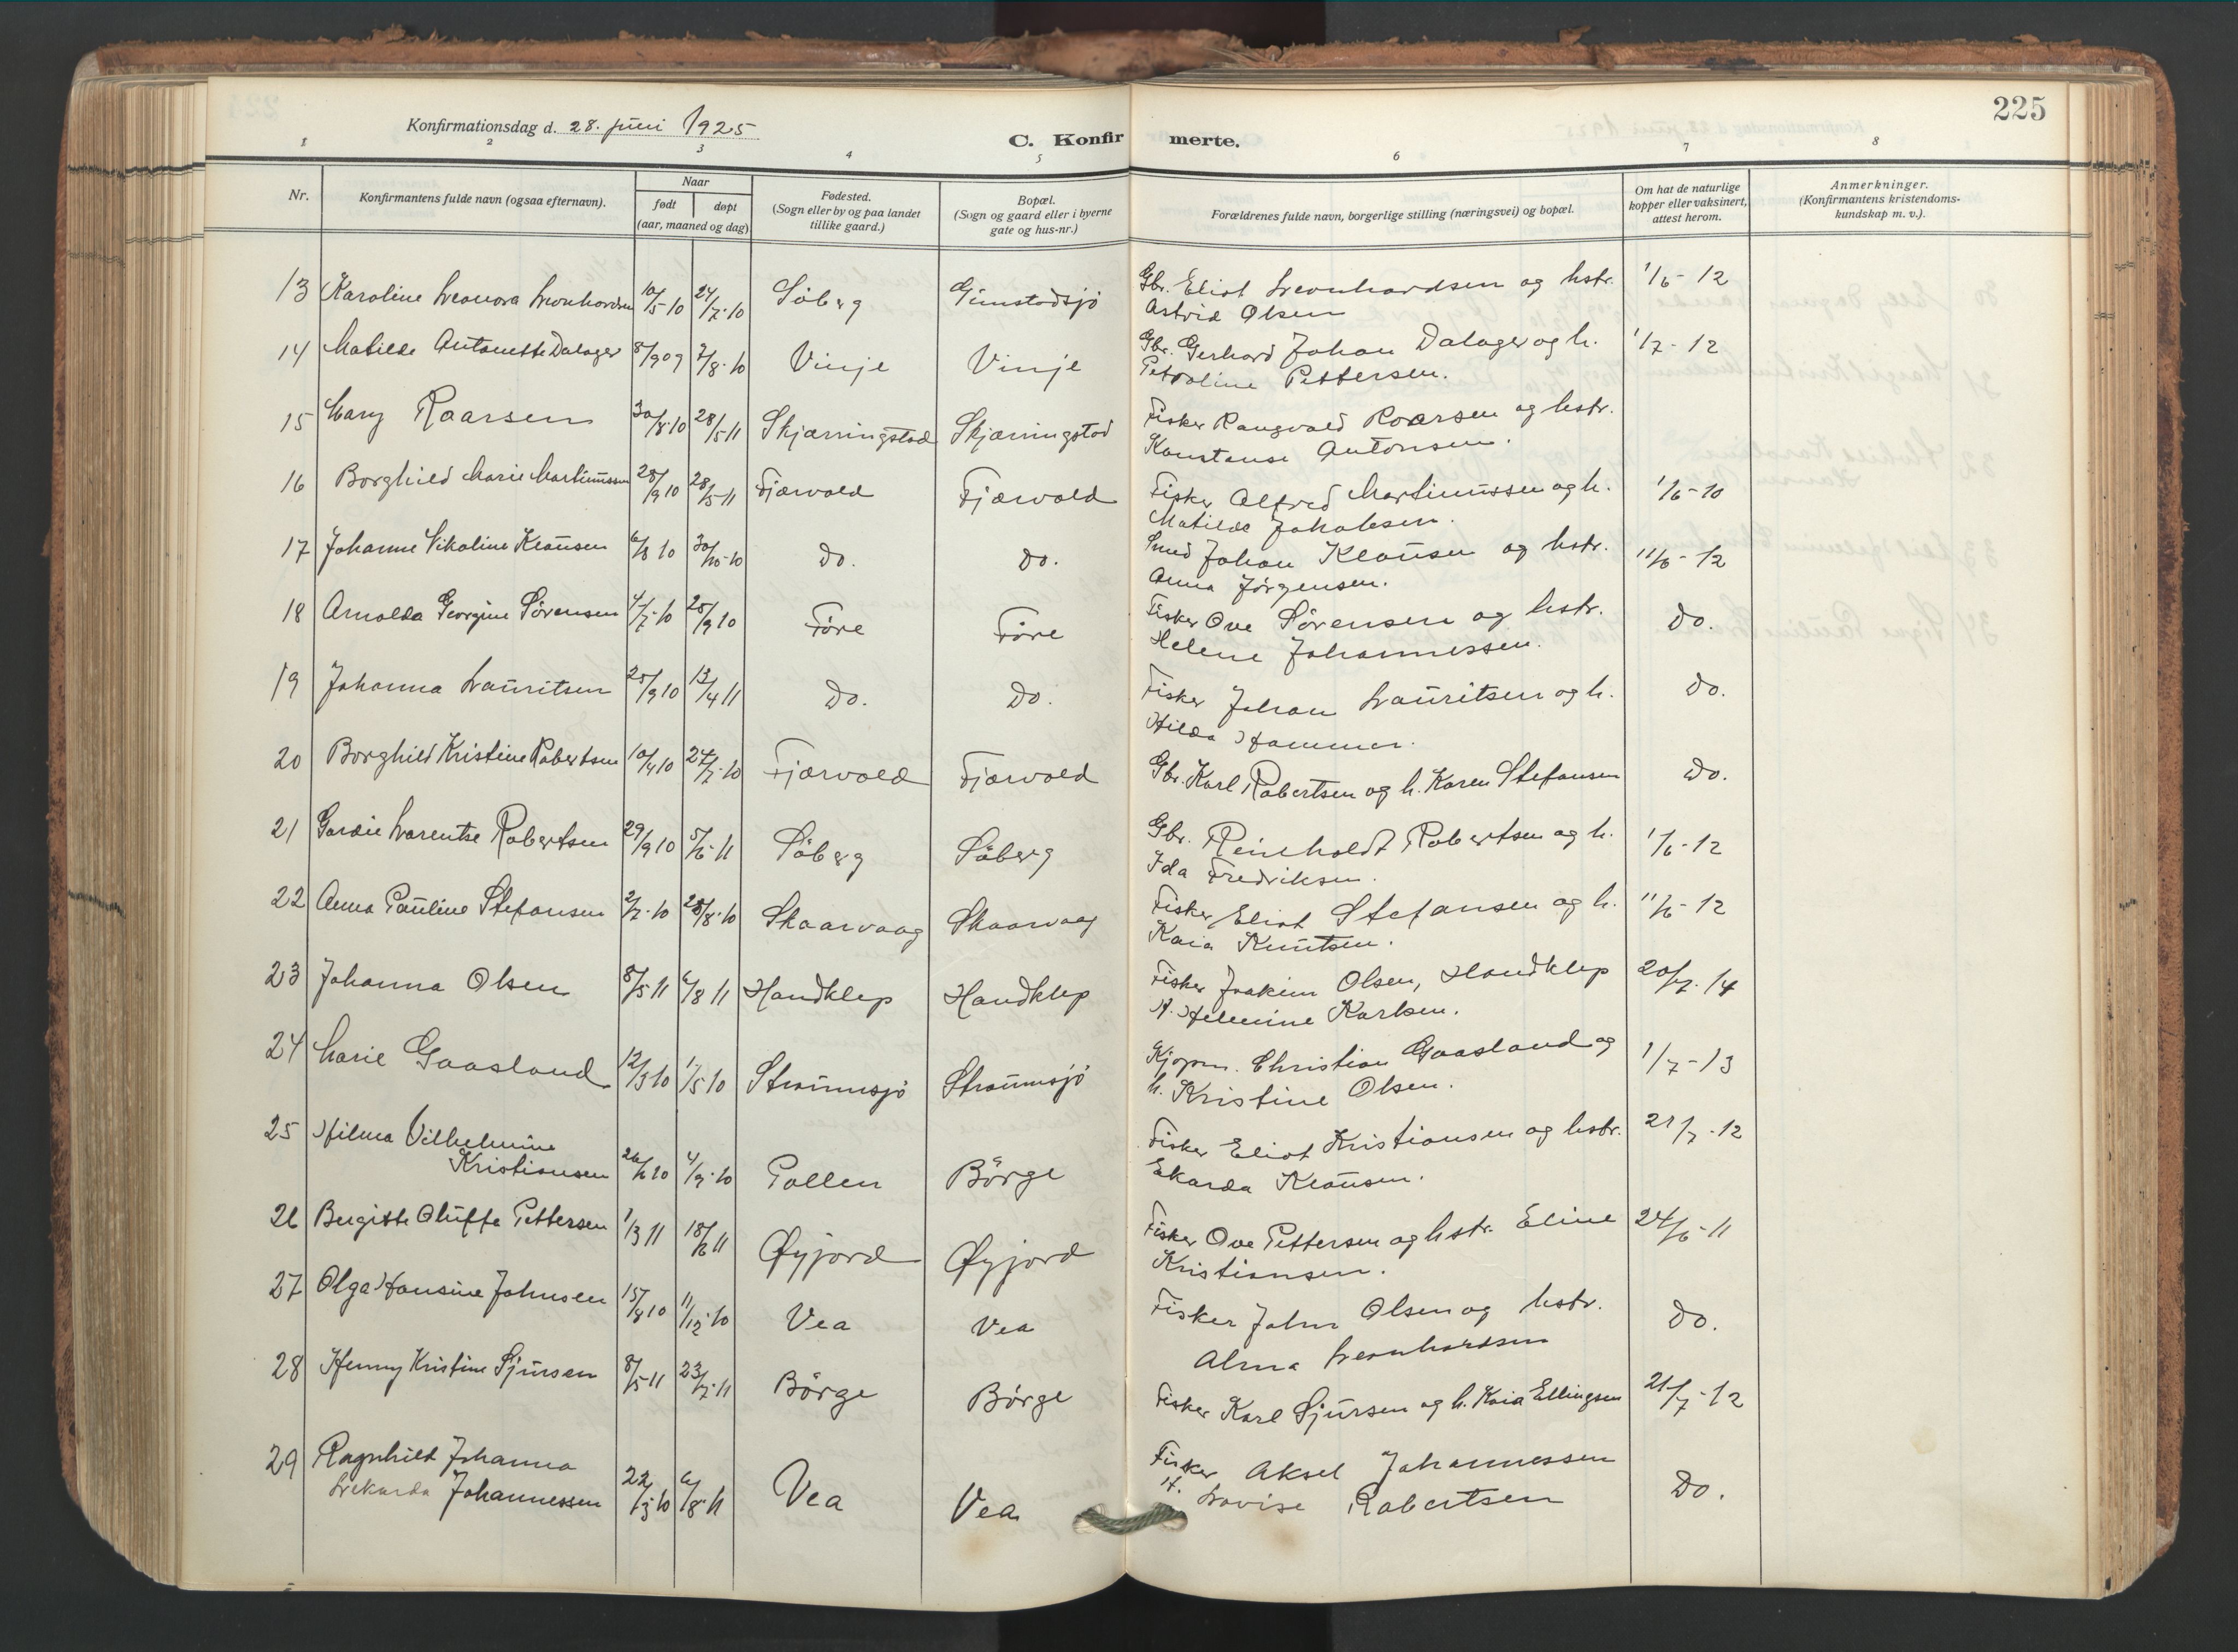 Konfirmationsdag d. 28. juni 1925
C. Konfirmerte.
225
1 2 3 4 5 6 7 8
Nr.
Konfirmantens fulde navn (ogsaa efternavn).
Naar
født døpt
(aar, maaned og dag)
Fødested.
(Sogn eller by og paa landet
tillike gaard.)
Bopæl.
(Sogn og gaard eller i byerne
gate og hus-nr.)
Forældrenes fulde navn, borgerlige stilling (næringsvei) og bopæl.
Om hat de naturlige
kopper eller vaksinert,
attest herom.
Anmerkninger.
(Konfirmantens kristendoms-
kundskap m. v.).
13 Karoline Leonora Leonhardsen 10/5-10 24/7-10 Söberg Gimstadsjö Gbr. Eliot Leonhardsen og hstr. 1/6-12
Astrid Olsen
14 Matilde Antonette Dalager 8/9 09 7/8-10 Vinje Vinje Gbr. Gerhard Johan Dalager og h. 1/7-12
Petroline Pettersen.
15 Mary Roarsen 30/8 10 28/5 11 Skjærringstad Skjærringstad Fisker Rangvald Roarsen og hstr.
Konstanse Antonsen.
16 Borghild Marie Martinussen 28/9 10 28/5-11 Fjærvold Fjærvold Fisker Alfred Martinussen og h. 1/6-10
Matilde Jakobsen.
17 Johanne Nikoline Klausen 6/8 10 30/10-10 do. do. Smed Johan Klausen og hstr. 11/6-12
Anna Jörgensen.
18 Arnolda Georgine Sörensen 4/7-10 25/9 10 Före Före Fisker Ove Sörensen og hstr. do.
Helene Johannessen.
19 Johanna Lauritsen 25/9 10 13/4 11 do. do. Fisker Johan Lauritsen og h. do.
Hilda Hammer.
20 Borghild Kristine Robertsen 10/4 10 24/7-10 Fjærvold Fjærvold Gbr. Karl Robertsen og h. Karen Stefansen do.
21 Gardie Larentse Robertsen 29/9 10 5/6-11 Söberg Söberg Gbr. Reinholdt Robertsen og h. 1/6-12
Ida Fredriksen.
22 Anna Pauline Stefansen 2/7-10 28/8-10 Skaarvaag Skaarvaag Fisker Eliot Stefansen og h. 11/6-12
Kaia Knutsen.
23 Johanna Olsen 8/5 11 6/8 11 Handklep Handklep Fisker Joakim Olsen, Handklep 20/7-14
H. Helmine Karlsen.
24 Marie Gaasland 12/3 10 1/5 10 Straumsjö Straumsjö Kjøpm. Christian Gaasland og 1/7-13
h. Kristine Olsen.
25 Hilma Vilhelmine
Kristiansen 26/6 10 4/9-10 Pollen Börge Fisker Eliot Kristiansen og hstr. 21/7-12
Ekarda Klausen.
26 Bergitte Oluffe Pettersen 1/3 11 18/6 11 Øyjord Øyjord Fisker Ove Pettersen og hstr. Eline 24/6-11
Kristiansen.
27 Olga Hansine Johnsen 15/8 10 11/12-10 Vea Vea Fisker John Olsen og hstr. do.
Alma Leonhardsen
28 Henny Kristine Sjursen 8/5-11 23/7-11 Börge Börge Fisker Karl Sjursen og h. Kaia Ellingsen 21/7-12
29 Ragnhild Johanna
Johannessen 22/3-10 6/8-11 Vea Vea Fisker Aksel Johannessen do.
H. Lovise Robertsen